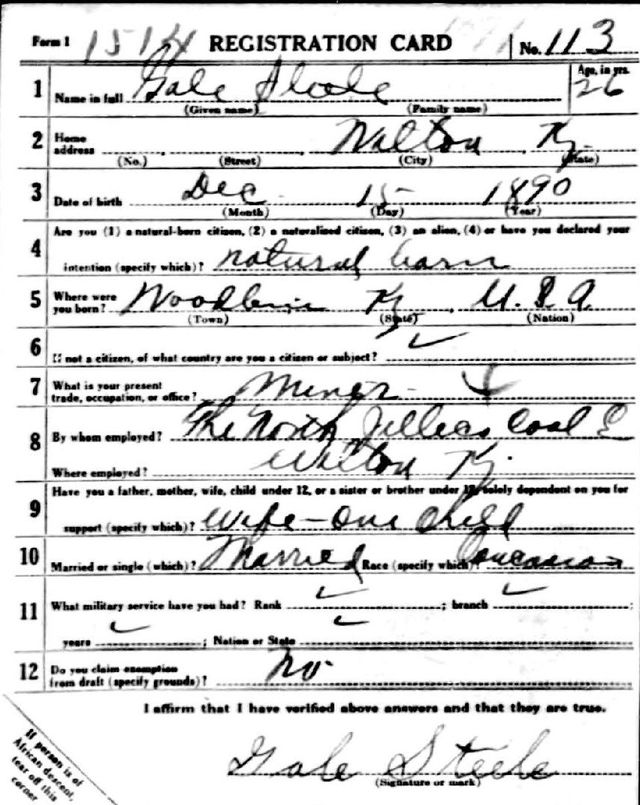 Form 1 1514 REGISTRATION CARD No. 113
1 Name in full Gale Steele Age, in yrs. 26
(Given name) (Family name)
2 Home address Wilton Ky.
(No.) (Street) (City) (State)
3 Date of birth Dec 15 1890
(Month) (Day) (Year)
4 Are you (1) a natural-born citizen, (2) a naturalized citizen, (3) an alien, (4) or have you declared your
intention (specify which)? natural born
5 Where were you born? Woodbine Ky U.S.A.
(Town) (State) (Nation)
6 If not a citizen, of what country are you a citizen or subject? ✓
7 What is your present trade, occupation, or office? Miner
8 By whom employed? The North Jellico Coal C
Where employed? Wilton Ky.
9 Have you a father, mother, wife, child under 12, or a sister or brother under 12, solely dependent on you for
support (specify which)? Wife - one child
10 Married or single (which)? Married Race (specify which)? Caucasian
11 What military service have you had? Rank ✓ ; branch ✓ ;
years ✓ ; Nation or State ✓
12 Do you claim exemption from draft (specify grounds)? No
I affirm that I have verified above answers and that they are true.
Gale Steele
(Signature or mark)
If person is of
African descent,
tear off this
corner